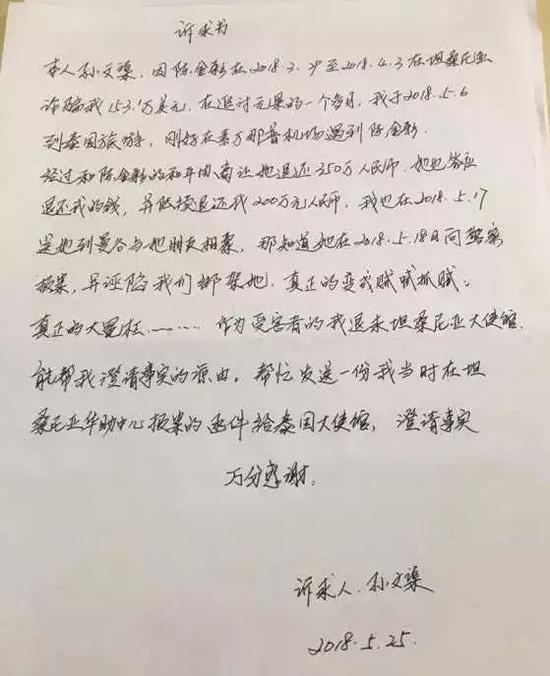 诉求书
本人孙文渠，因陈金彩在2018.2.29至2018.4.3在坦桑尼亚
诈骗我153.1万美元。在追讨无果的一个多月，我于2018.5.6
到泰国旅游，刚好在素万那普机场遇到陈金彩.
经过和陈金彩的和平协商让她退还350万人民币，她也答应
退还我的钱，并陆续退还我200万元人民币，我也在2018.5.17
送她到曼谷与她朋友相聚，那知道她在2018.5.18日向警察
报案，并诬陷我们绑架她.真正的变成贼喊抓贼。
真正的大冤枉………作为受害者的我恳求坦桑尼亚大使馆.
能帮我澄清事实的原由。帮忙发送一份我当时在坦
桑尼亚华助中心报案的函件给泰国大使馆，澄清事实
万分感谢.
诉求人.孙文渠
2018.5.25.